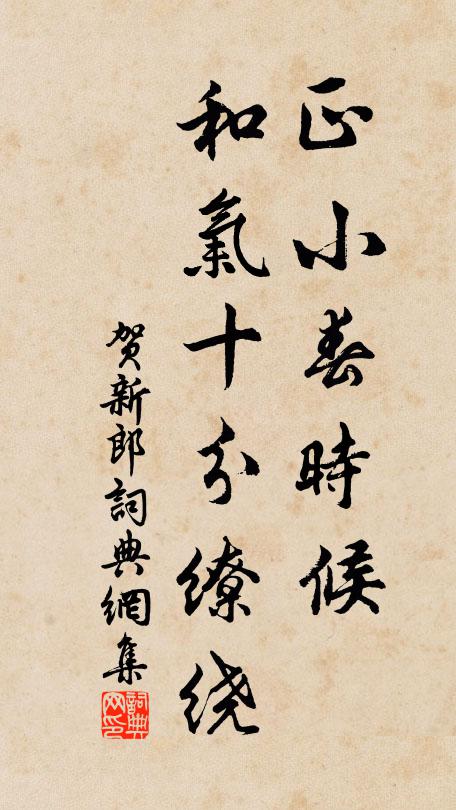 正小春時候
和氣十分繚绕
贺新郎詞典網集
詞典
网印